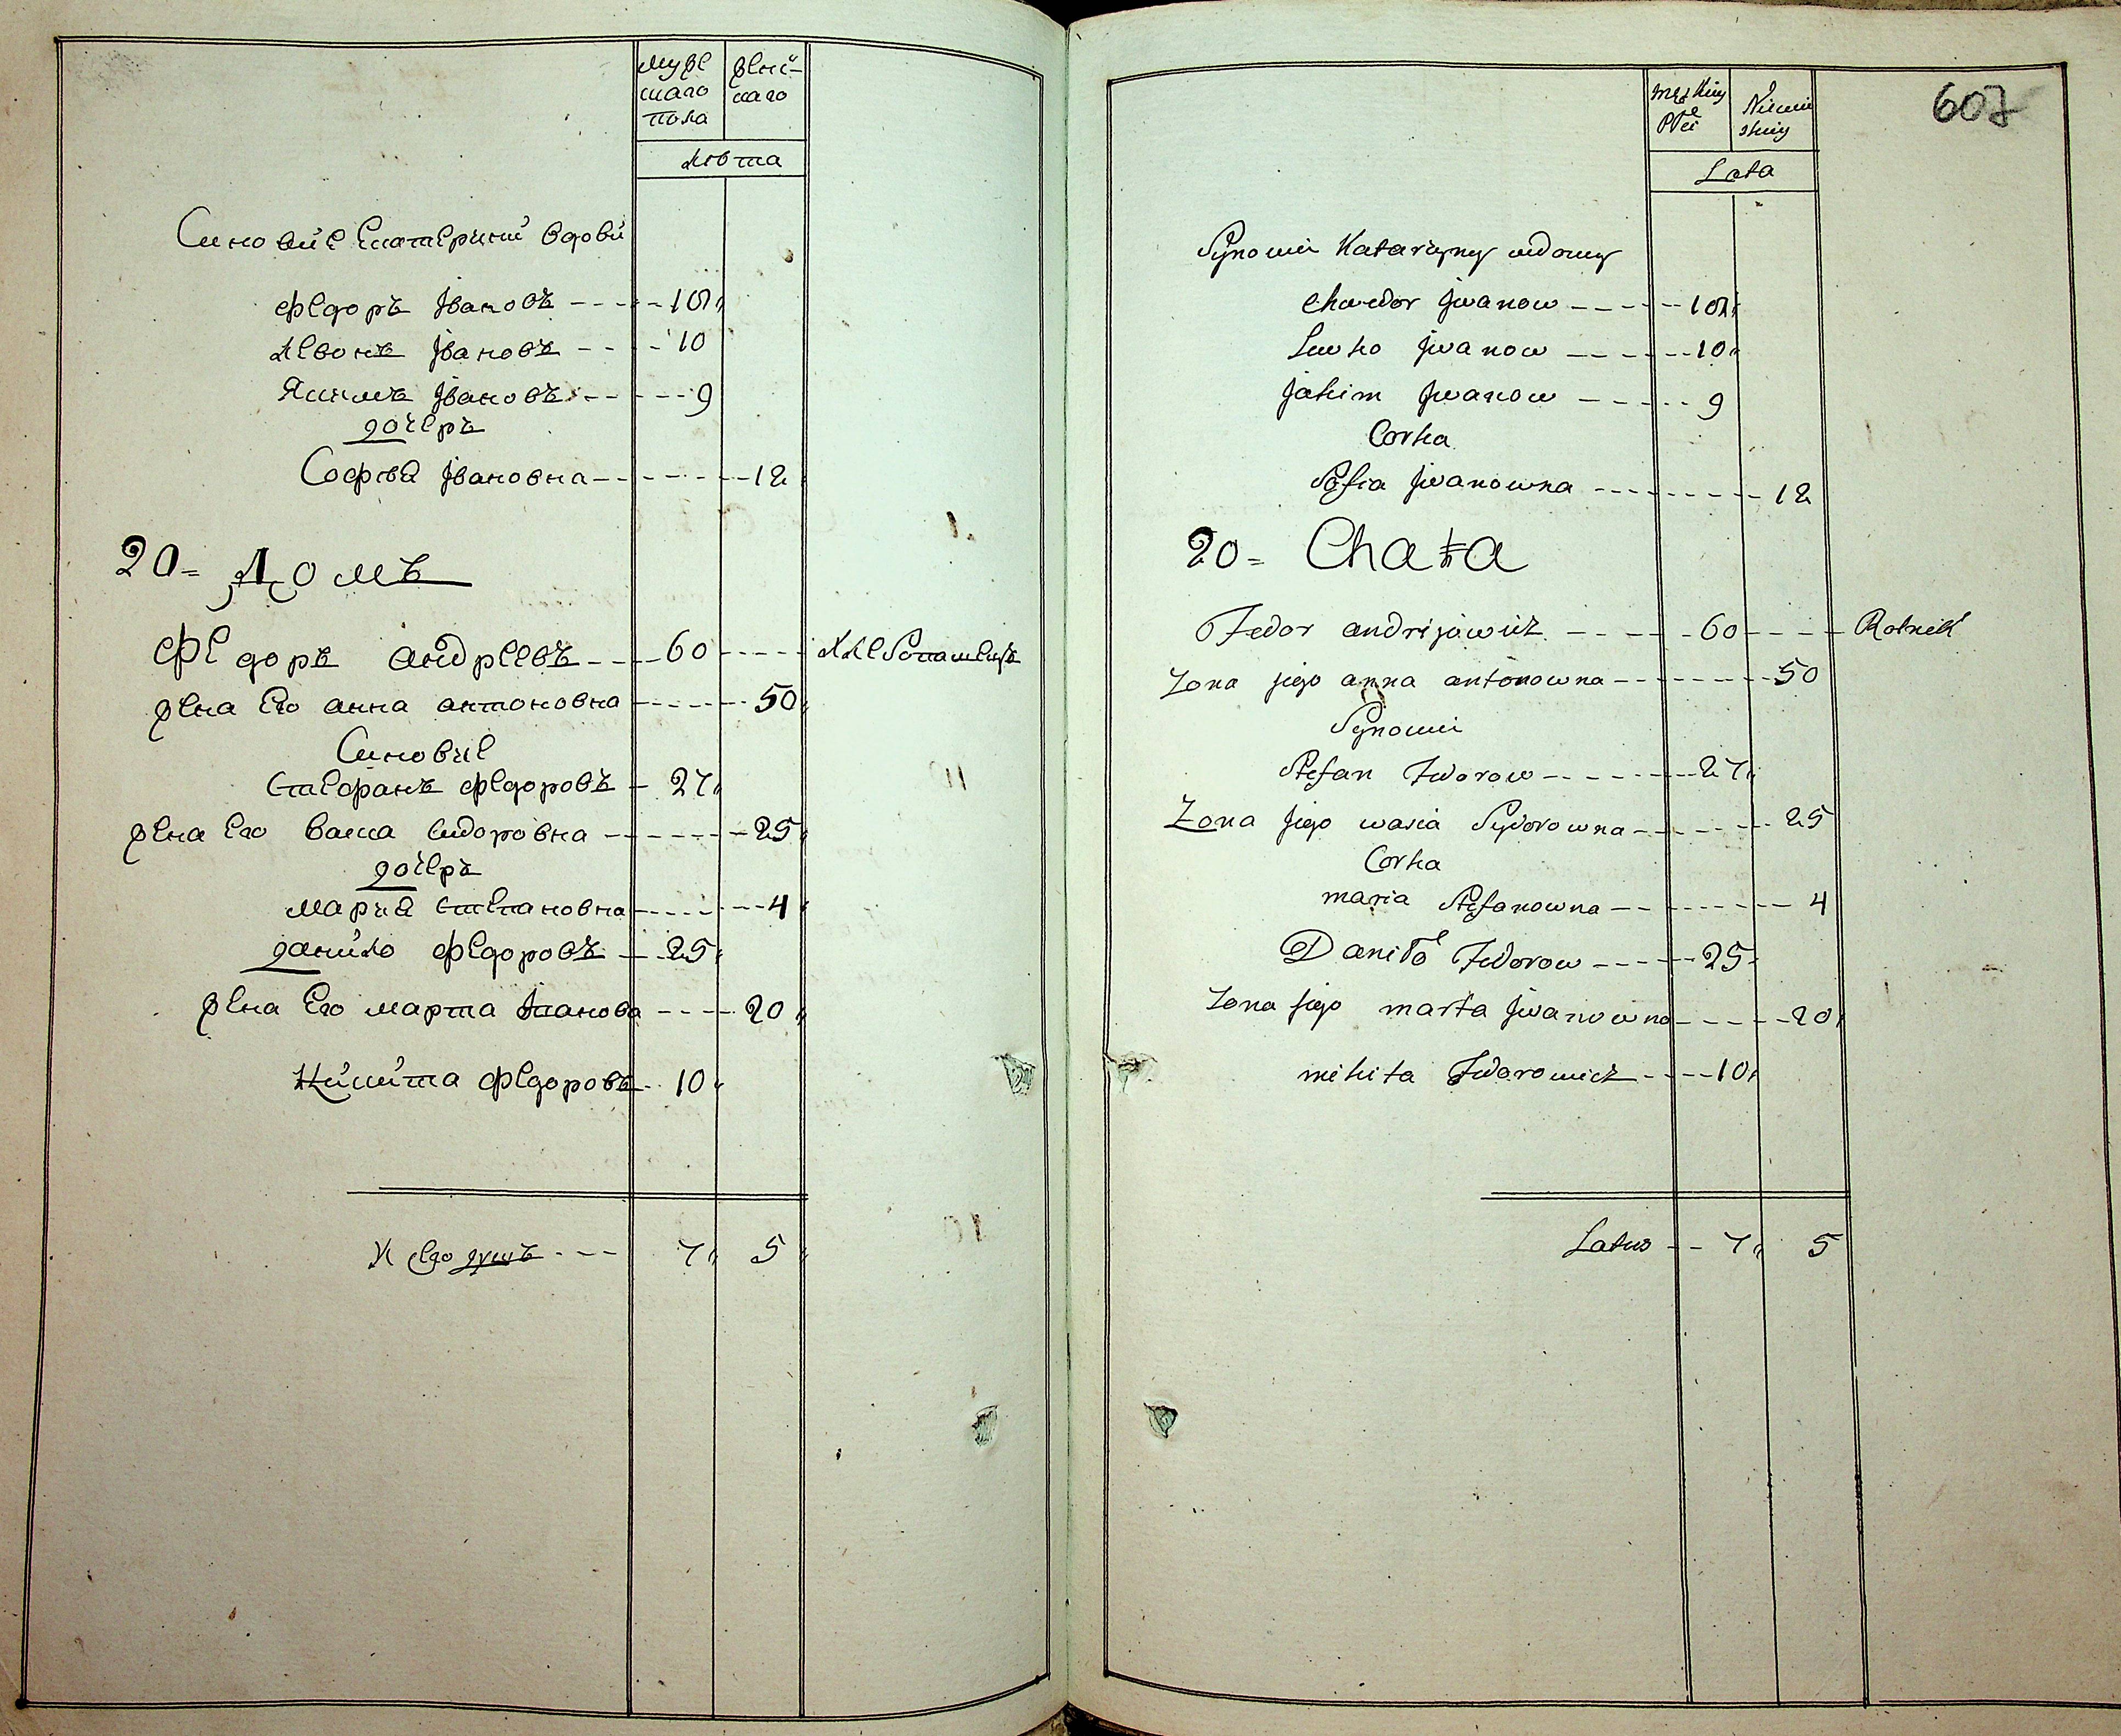 муже
скаго
пола
женс-
каго
лѣта
Синовие Екатерини вдови
Федоръ Iвановъ ----- 10
Левонъ Iвановъ ---- 10
Якимъ Iвановъ ----- 9
дочеръ
Софѣя Iвановна -------- 12
20= Домъ
Федоръ Андреевъ ---- 60 -----
жена Его анна антоновна ------ 50
Синовие
Степанъ Федоровъ - 27
жена Его васса сидоровна ------- 25
дочеръ
Мария Степановна ------- 4
данило Федоровъ -- 25
жена Его марта Iванова ----- 20
Никита Федоровъ -- 10
душъ --- 7 5
607
męzkiey
Płci
Niewie
skiey
Lata
Synowie Katarzyny wdowy
Chwedor Jwanow ------ 10
Lewko Jwanow ------ 10
Jakim Jwanow ----- 9
Corka
Sofia Jwanowna --------- 12
20= Chata
Fedor andrijowicz ----- 60 ---- Rolnik
Zona jego anna antonowna -------- 50
Synowie
Stefan Fedorow ------- 27
Zona jego wasia Sydorowna ------- 25
Corka
maria Stefanowna -------- 4
Daniło Fedorow ----- 25
Zona jego marta Jwanowna ----- 20
mikita Fedorowicz ---- 10
Latus -- 7 5